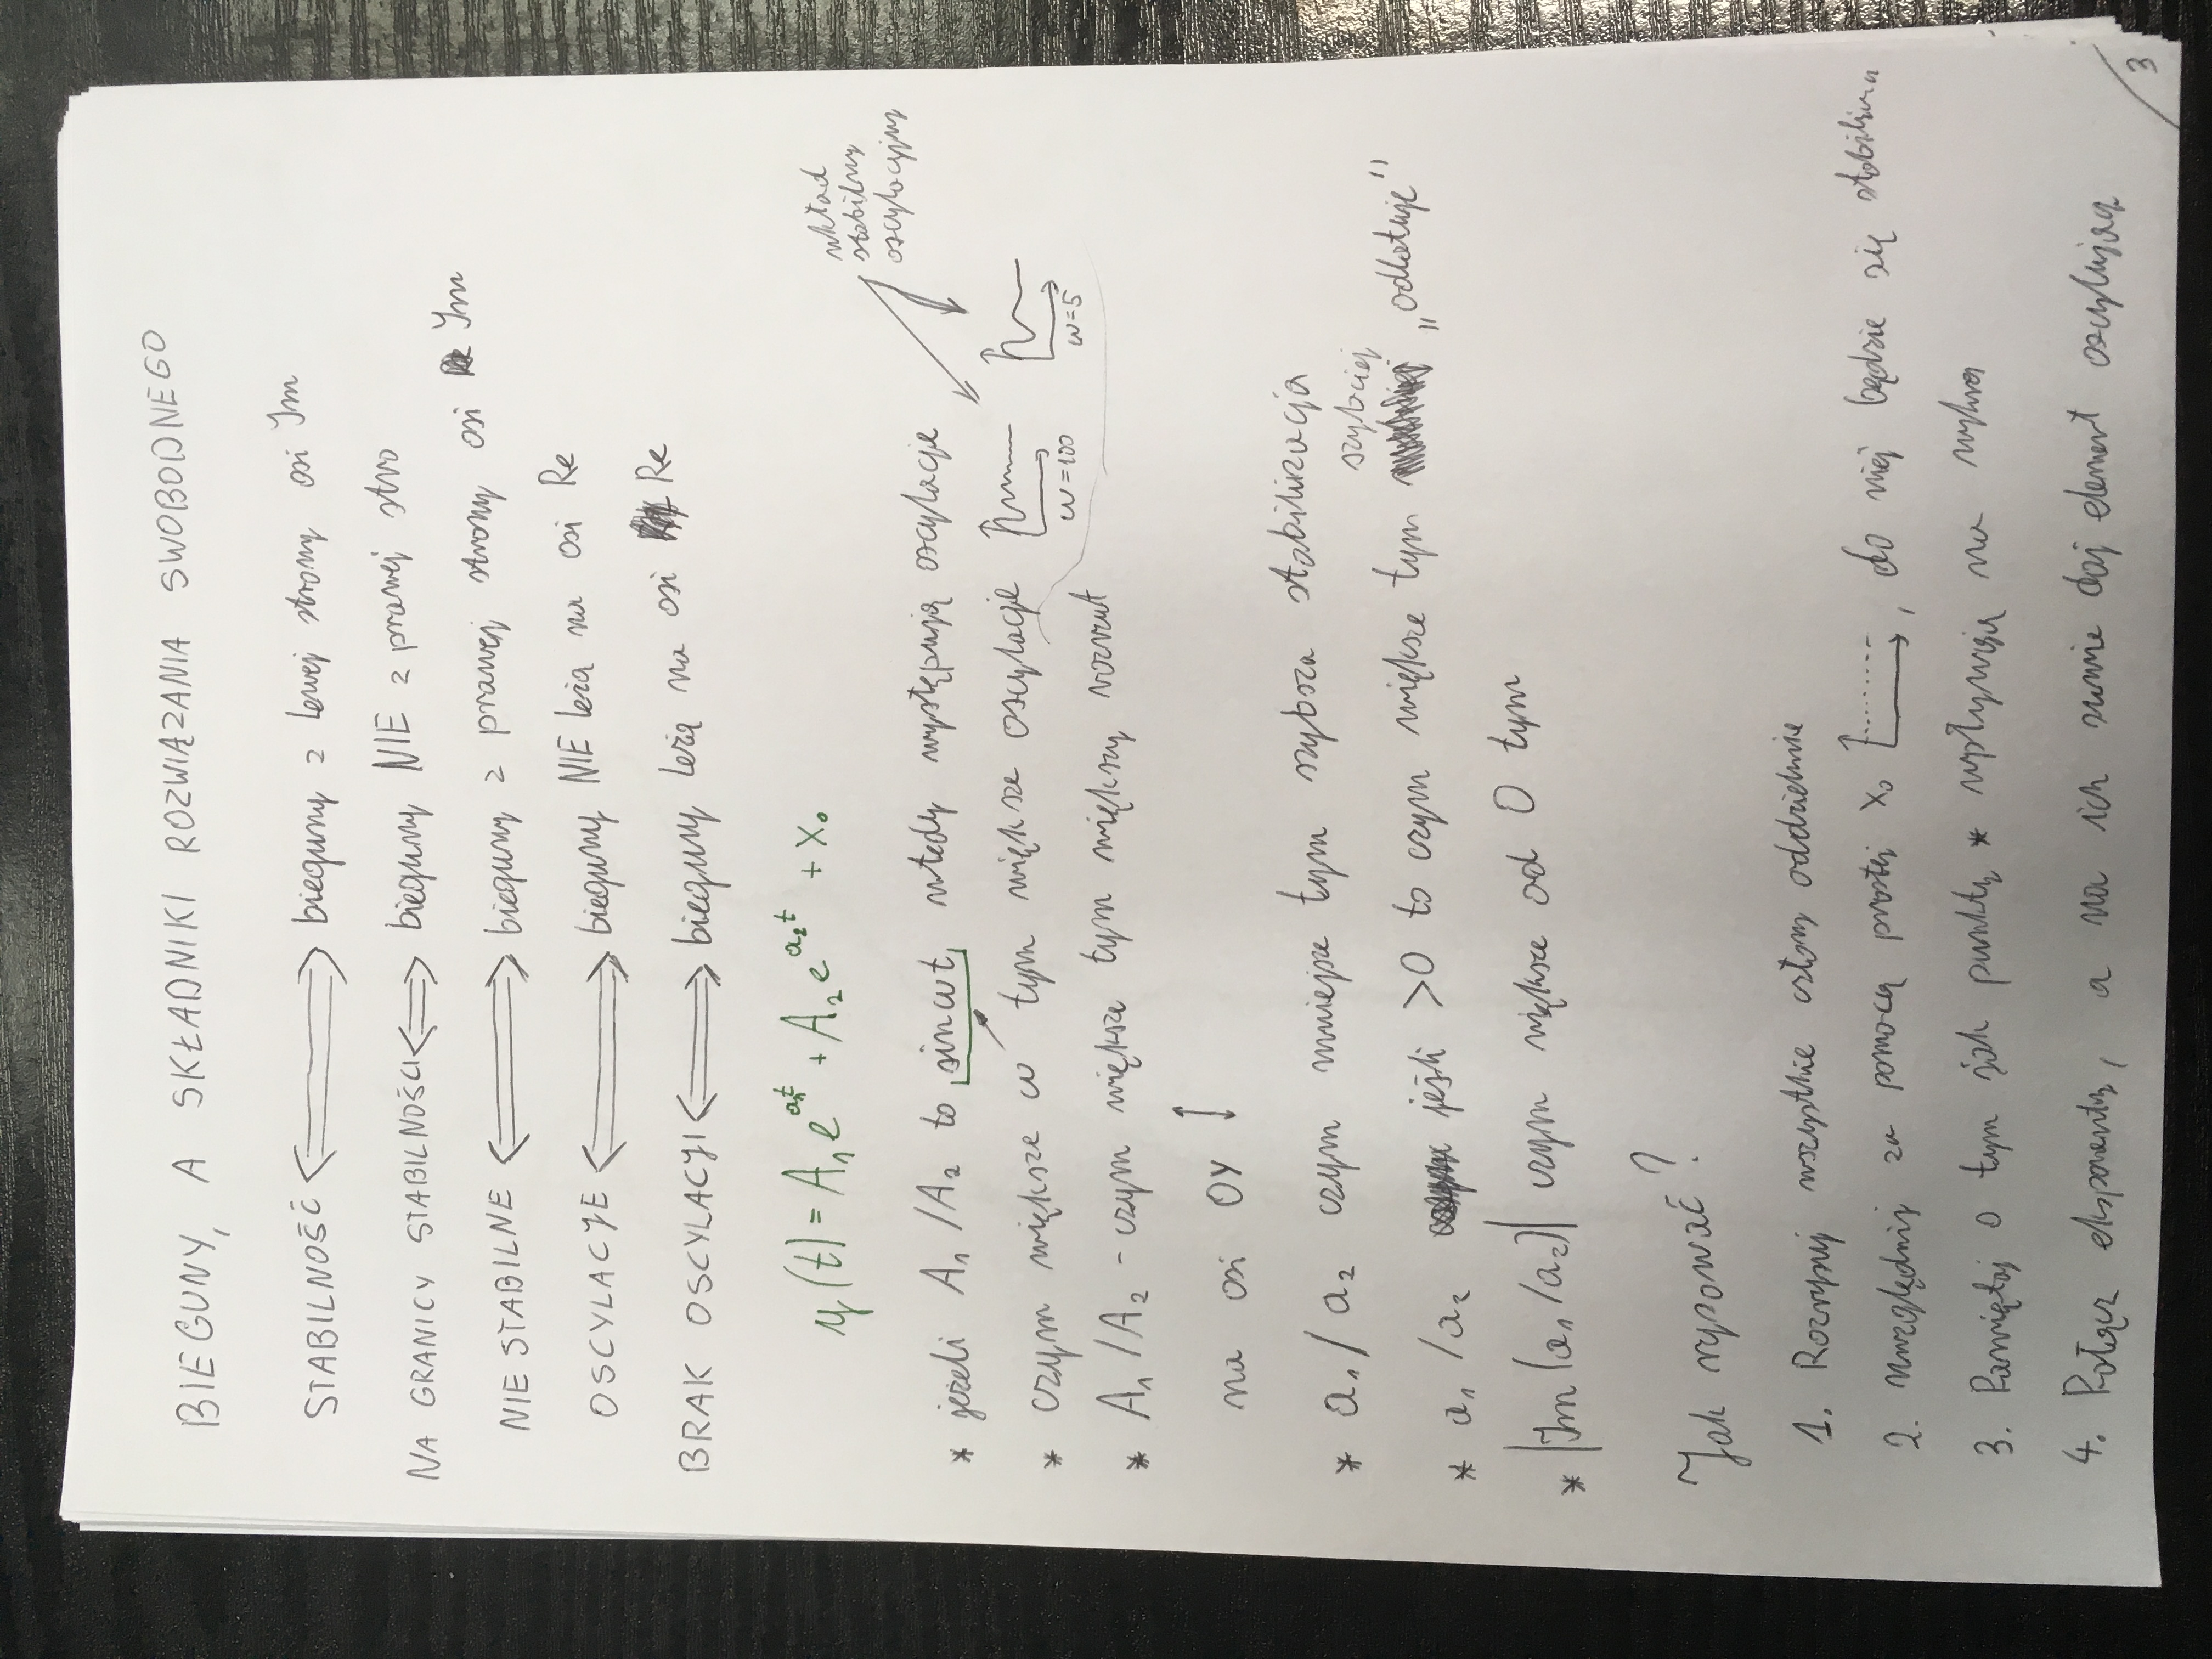 BIEGUNY, A SKŁADNIKI ROZWIĄZANIA SWOBODNEGO
STABILNOŚĆ ⟺ bieguny z lewej strony osi Im
NA GRANICY STABILNOŚCI ⟺ bieguny NIE z prawej stro
NIESTABILNE ⟺ bieguny z prawej strony osi Im
OSCYLACJE ⟺ bieguny NIE leżą na osi Re
BRAK OSCYLACJI ⟺ bieguny leżą na osi Re
y(t) = A₁e^(a₁t) + A₂e^(a₂t) + x₀
układ
stabilny
oscylacyjny
* jeżeli A₁/A₂ to sinωt, wtedy występują oscylacje
* czym większe ω tym większe oscylacje
ω=100
ω=5
* A₁/A₂ - czym większe tym większy rozrzut
na osi OY ↕
* a₁/a₂ czym mniejsze tym szybsza stabilizacja
szybciej
* a₁/a₂ jeśli >0 to czym większe tym „odlatuje"
* |Im(a₁/a₂)| czym większe od 0 tym
Jak rysować?
1. Rozrysuj wszystkie człony oddzielnie
2. Uwzględnij za pomocą prostej x₀, do niej będzie się stabiliza
3. Pamiętaj o tym jak punkty * wpływają na wykres
4. Połącz eksponenty, a na ich sumie daj element oscylujący
3